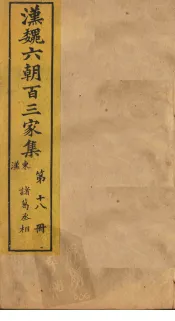 漢魏六朝百三家集
第十八冊
東漢
諸葛丞相